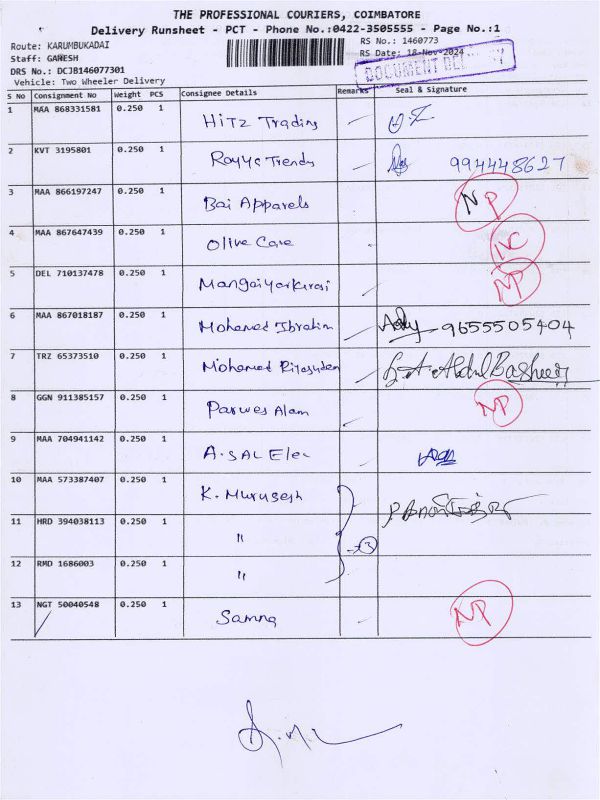 THE PROFESSIONAL COURIERS, COIMBATORE
Delivery Runsheet - PCT - Phone No.:0422-3505555 - Page No.:1
Route: KARUMBUKADAI RS No.: 1460773
Staff: GANESH RS Date: 18-Nov-2024
DRS No.: DCJB146077301 DOCUMENT
Vehicle: Two Wheeler Delivery
S No Consignment No Weight PCS Consignee Details Remarks Seal & Signature
1 MAA 868331581 0.250 1 Hitz Trading
2 KVT 3195801 0.250 1 994448627
3 MAA 866197247 0.250 1 Bai Apparels NP
4 MAA 867647439 0.250 1 Olive Care
5 DEL 710137478 0.250 1 NP
6 MAA 867018187 0.250 1 Mohamed Ibrahim 9655505404
7 TRZ 65373510 0.250 1 Mohamed
8 GGN 911385157 0.250 1 Parwes Alam NP
9 MAA 704941142 0.250 1 A. SAL Elec
10 MAA 573387407 0.250 1 K. Murugesh
11 HRD 394038113 0.250 1 "
12 RMD 1686003 0.250 1 "
13 NGT 50040548 0.250 1 NP